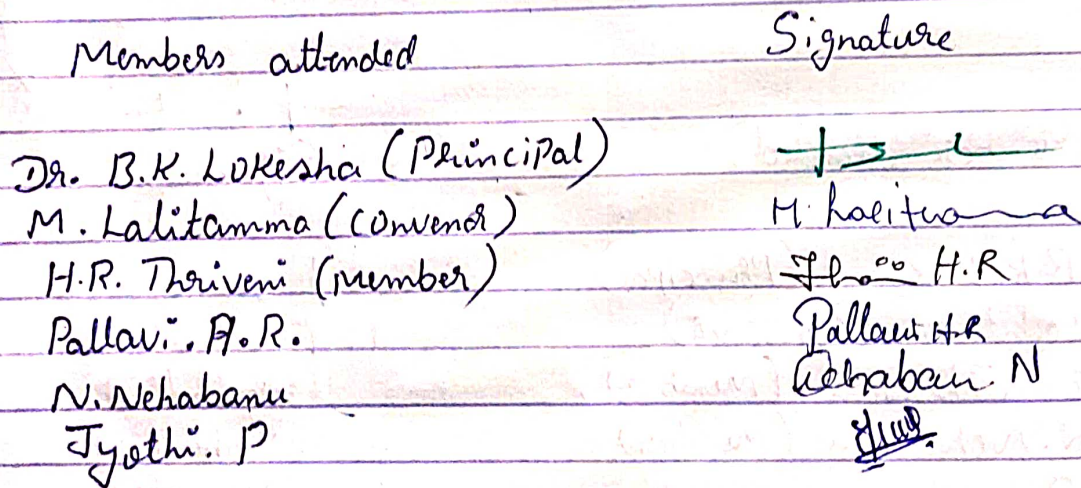 Members attended Signature
Dr. B.K. Lokesha (Principal)
M. Lalitamma (Convenor) M.
H.R. Thriveni (Member) H.R
Pallavi. H.R. Pallavi H.R
N. Nehabanu Nehabanu N
Jyothi. P